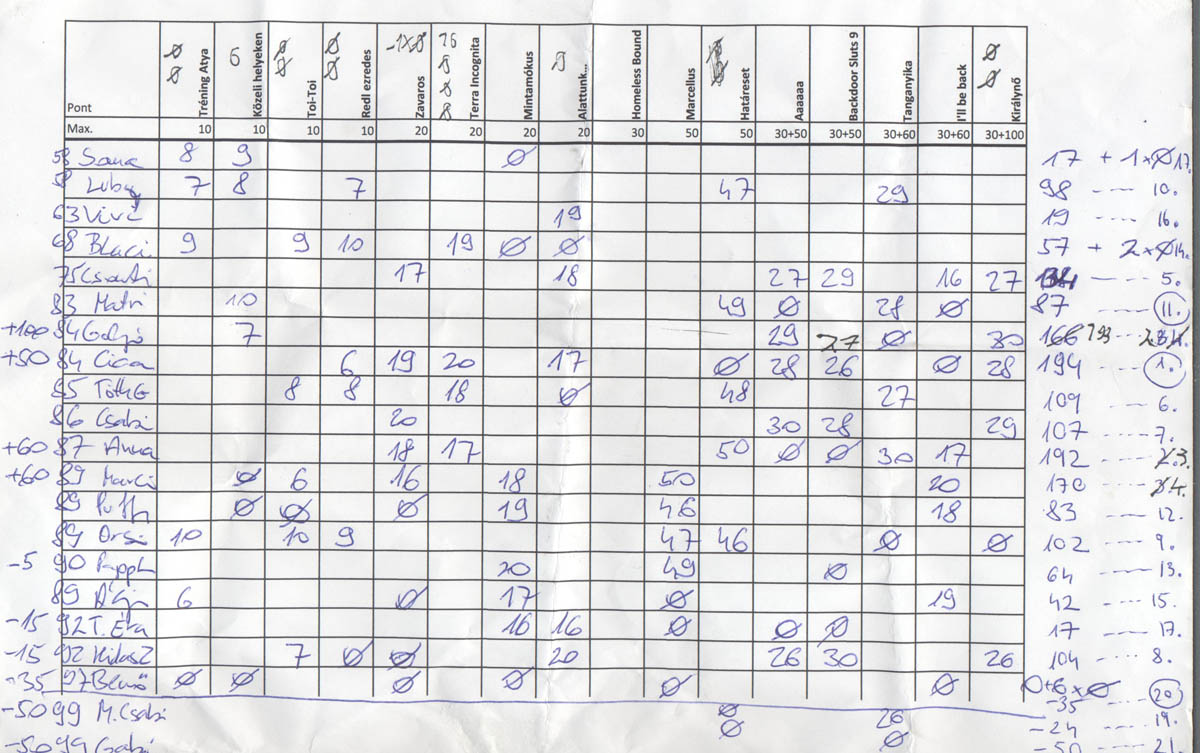 Pont Tréning Atya Közeli helyeken Toi-Toi Redl ezredes Zavaros Terra Incognita Mintamókus Alattunk... Homeless Bound Marcellus Határeset Aaaaaa Backdoor Sluts 9 Tanganyika I'll be back Királynő
ø ø 6 ø ø ø ø -1xø 16 ø ø ø ø ø ø
Max. 10 10 10 10 20 20 20 20 30 50 50 30+50 30+50 30+60 30+60 30+100
58 Sana 8 9 ø 17 + 1xø 17.
58 Luby 7 8 7 47 29 98 --- 10.
63 Vivi 19 19 --- 16.
68 Blaci 9 9 10 19 ø ø 57 + 2xø 14.
75 Csonti 17 18 27 29 16 27 134 --- 5.
83 Matri 10 49 ø 28 ø 87 11.
+100 84 7 29 27 ø 30 166 193 ---
+50 84 Cica 6 19 20 17 ø 28 26 ø 28 194 --- 1.
85 TóthG 8 8 18 ø 48 27 109 --- 6.
86 Csabi 20 30 28 29 107 ---- 7.
+60 87 Anna 18 17 50 ø ø 30 17 192 --- 3.
+60 89 Marci ø 6 16 18 50 20 170 --- 4.
89 Puffi ø ø ø 19 46 18 83 --- 12.
89 Orsi 10 10 9 47 46 ø ø 102 --- 9.
-5 90 20 49 ø 64 --- 13.
89 6 ø 17 ø 19 42 ---- 15.
-15 92 T. Éva 16 16 ø ø ø 17 --- 17.
-15 92 7 ø ø 20 26 30 26 104 ---- 8.
-35 97 Benső ø ø ø ø ø ø 0+6xø 20
-35
-50 99 M. Csabi ø 26 -24 --- 19.
-50 99 Gabi ø ø -50 --- 21.